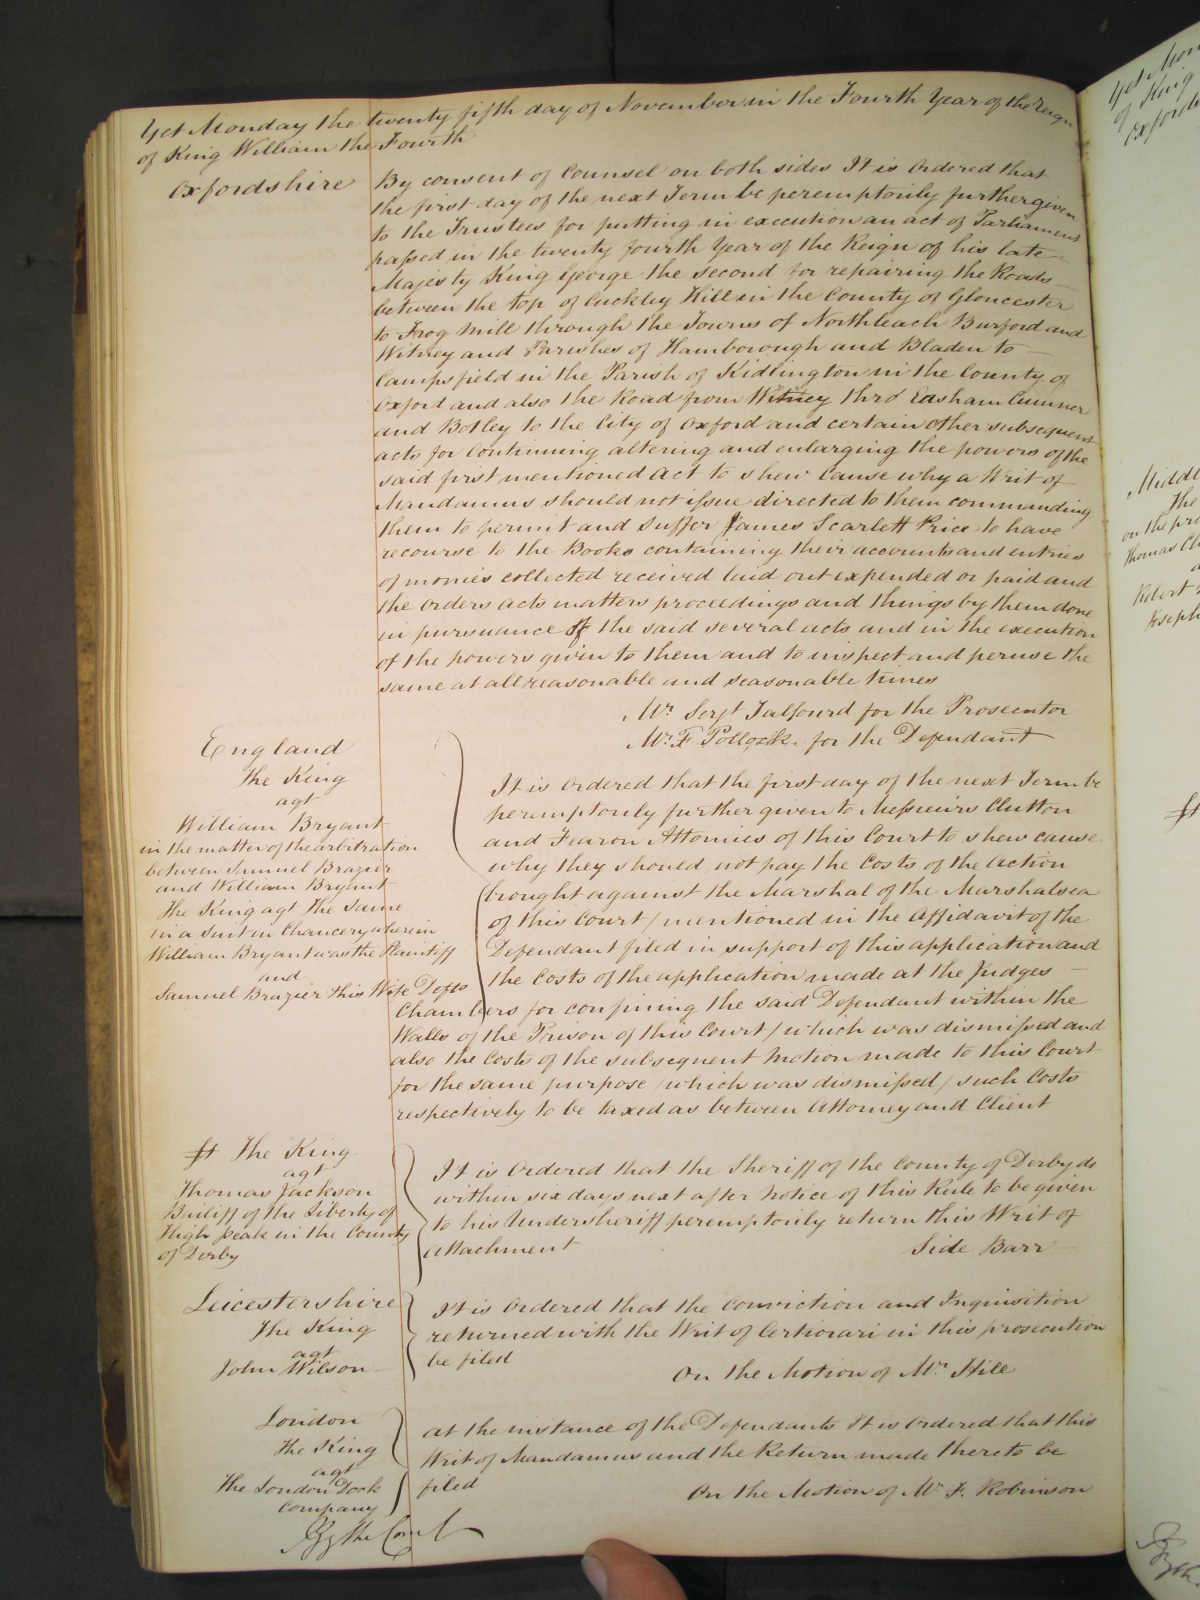 Yet Monday the twenty fifth day of November in the Fourth Year of the Reign
of King William the Fourth
Oxfordshire
By consent of Counsel on both sides It is Ordered that
the first day of the next Term be peremptorily further given
to the Trustees for putting in execution an act of Parliament
passed in the twenty fourth Year of the Reign of his late
Majesty King George the Second for repairing the Roads
between the top of Cuckley Hill in the County of Gloucester
to Frog Mill through the Towns of Northleach Burford and
Witney and Parishes of Hamborough and Bladen to
Campsfield in the Parish of Kidlington in the County of
Oxford and also the Road from Witney thro' Easham Cumner
and Botley to the City of Oxford and certain other subsequent
acts for continuing altering and enlarging the powers of the
said first mentioned Act to shew cause why a Writ of
Mandamus should not issue directed to them commanding
them to permit and suffer James Scarlett Price to have
recourse to the Books containing their accounts and entries
of monies collected received laid out expended or paid and
the orders acts matters proceedings and things by them done
in pursuance of the said several acts and in the execution
of the powers given to them and to inspect and peruse the
same at all reasonable and seasonable times
Mr. Serjt Talfourd for the Prosecutor
Mr. F Pollock for the Defendant
England
The King
agt
William Bryant
in the matter of the arbitration
between Samuel Brazier
and William Bryant
The King agt The Same
in a Suit in Chancery wherein
William Bryant was the Plaintiff
and
Samuel Brazier & his Wife Defts
It is Ordered that the first day of the next Term be
peremptorily further given to Messieurs Clutton
and Fearon Attornies of this Court to shew cause
why they should not pay the Costs of the action
brought against the Marshal of the Marshalsea
of this Court / mentioned in the Affidavit of the
Defendant filed in support of this application and
the Costs of the application made at the Judges
Chambers for confining the said Defendant within the
Walls of the Prison of this Court / which was dismissed and
also the Costs of the subsequent Motion made to this Court
for the same purpose / which was dismissed / such Costs
respectively to be taxed as between Attorney and Client
The King
agt
Thomas Jackson
Bailiff of the Liberty of
High Peak in the County
of Derby
It is Ordered that the Sheriff of the County of Derby do
within six days next after Notice of this Rule to be given
to his Undersheriff peremptorily return this Writ of
Attachment
Side Barr
Leicestershire
The King
agt
John Wilson
It is Ordered that the Conviction and Inquisition
returned with the Writ of Certiorari in this prosecution
be filed
On the Motion of Mr. Hill
London
The King
agt
The London Dock
Company
At the instance of the Defendants It is Ordered that this
Writ of Mandamus and the Return made thereto be
filed
On the Motion of Mr. F. Robinson
By the Court
Yet Mon
of King
Oxfords
Middl
The
on the pro
Thomas Cl
Robert
Joseph
By the